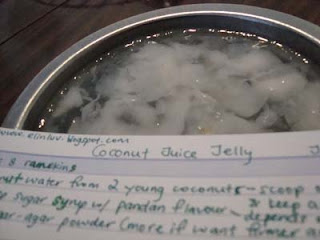 www.elinluv.blogspot.com
Coconut Juice Jelly J
s 8 ramekins
nut water from 2 young coconuts - scoop
sugar syrup w/ pandan flavour - depends
& keep a
gar-agar powder (more if want firmer a